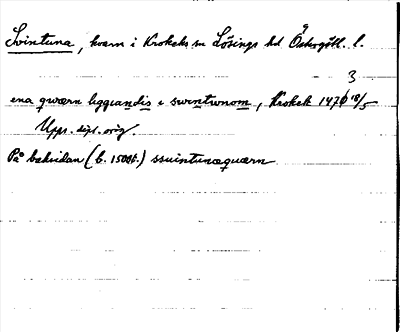 Svintuna, kvarn i Krokeks sn Lösings hd Östergötl. l.
3
ena qwærn liggiandis i swintwnom, Krokek 1476 18/5
Upps. dipl. orig
På baksidan (b. 1500t.) ssuintunaquærn